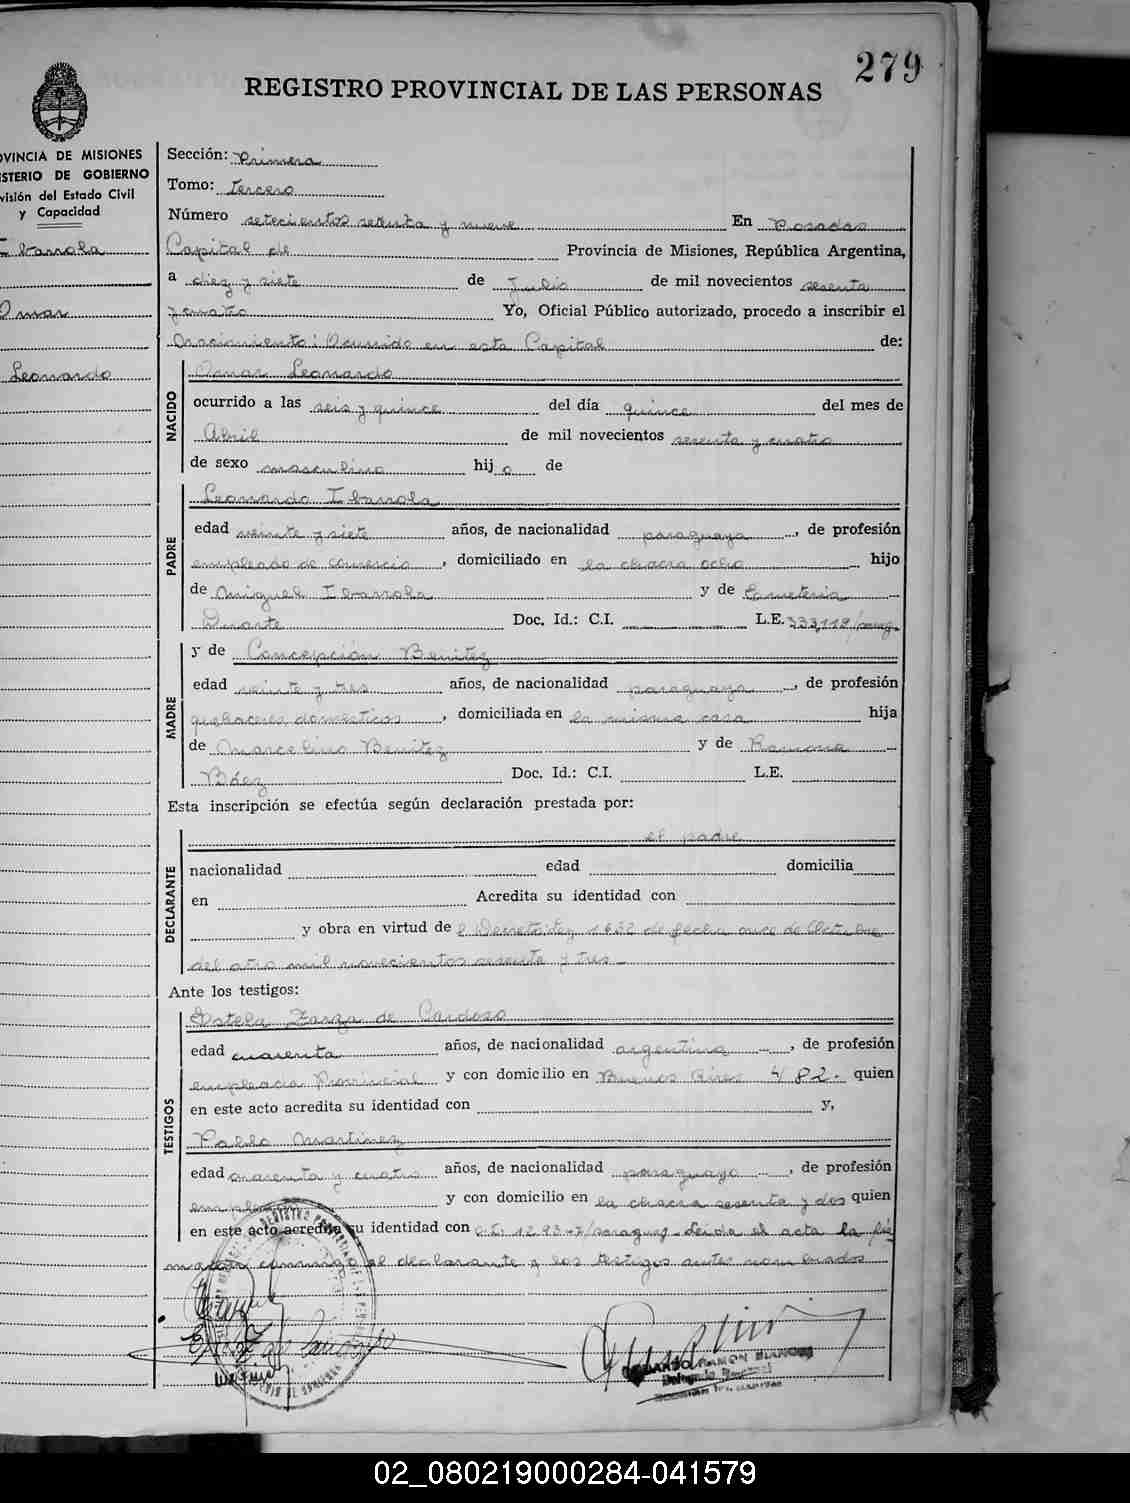 279
REGISTRO PROVINCIAL DE LAS PERSONAS
OVINCIA DE MISIONES
ISTERIO DE GOBIERNO
visión del Estado Civil
y Capacidad
Ibarrola
Omar
Leonardo
Sección: Primera
Tomo: tercero
Número setecientos sesenta y nueve En Posadas
Capital de Provincia de Misiones, República Argentina,
a diez y siete de Julio de mil novecientos sesenta
y cuatro Yo, Oficial Público autorizado, procedo a inscribir el
Nacimiento: Ocurrido en esta Capital de:
NACIDO
Omar Leonardo
ocurrido a las seis y quince del día quince del mes de
Abril de mil novecientos sesenta y cuatro
de sexo masculino hijo de
PADRE
Leonardo Ibarrola
edad veinte y siete años, de nacionalidad paraguaya, de profesión
empleado de comercio, domiciliado en la chacra ocho hijo
de Miguel Ibarrola y de Emeteria
Duarte Doc. Id.: C.I. L.E. 333,119/parag.
MADRE
y de Concepción Benitez
edad veinte y tres años, de nacionalidad paraguaya, de profesión
quehaceres domésticos, domiciliada en la misma casa hija
de Marcelino Benitez y de Ramona
Báez Doc. Id.: C.I. L.E.
Esta inscripción se efectúa según declaración prestada por:
DECLARANTE
el padre
nacionalidad edad domicilia
en Acredita su identidad con
y obra en virtud de Decreto Ley 1632 de fecha once de Octubre
del año mil novecientos sesenta y tres
Ante los testigos:
TESTIGOS
Estela Zarza de Cardozo
edad cuarenta años, de nacionalidad argentina, de profesión
empleada Provincial y con domicilio en Buenos Aires 482. quien
en este acto acredita su identidad con y,
Pablo Martinez
edad cuarenta y cuatro años, de nacionalidad paraguayo, de profesión
empleado y con domicilio en la chacra sesenta y dos quien
en este acto acredita su identidad con Leida el acta la fir
maron conmigo el declarante y los testigos antes nombrados
RAMON
02_080219000284-041579